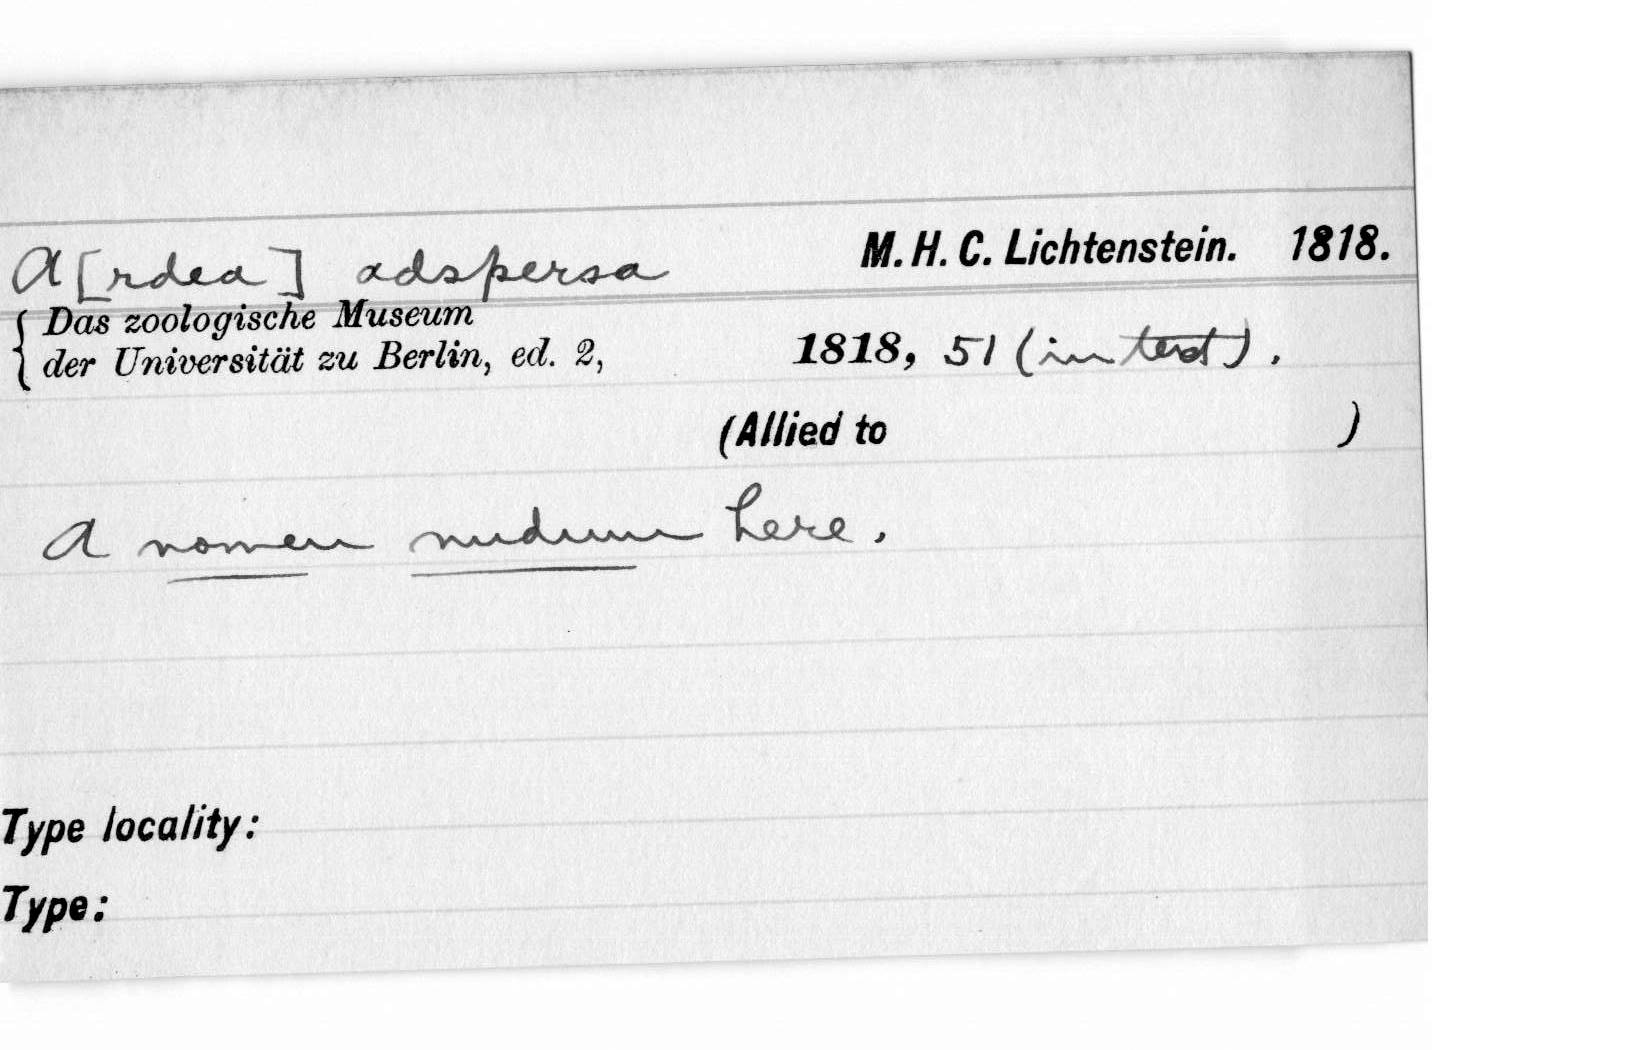 A[rdea] adspersa M. H. C. Lichtenstein. 1818.
{ Das zoologische Museum
der Universität zu Berlin, ed. 2, 1818, 51 (in text).
(Allied to )
A nomen nudum here.
Type locality:
Type: